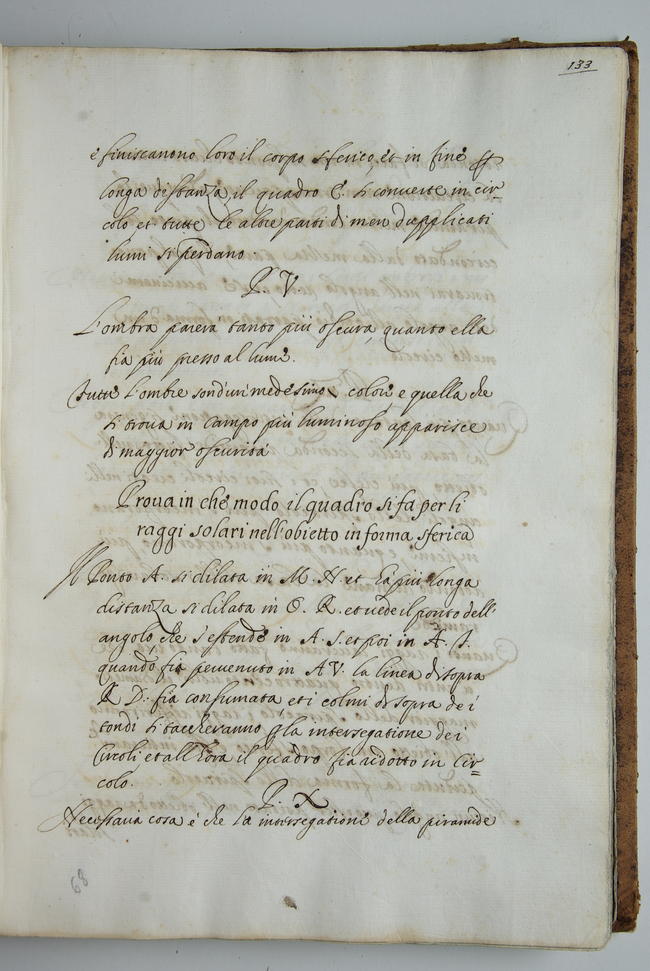 133
e finiscanono loro il corpo sferico, et in fine p
longa distanza il quadro C. si converte in cir=
colo et tutte le altre parti di men dupplicati
lumi si perdano.
P. V.
L'ombra parera tanto più oscura, quanto ella
fia più presso al lume.
Tutte l'ombre sond'un medesimo colore e quella che
si trova in campo più luminoso apparisce
di maggior oscurità
Prova in che modo il quadro si fa per li
raggi solari nell'obietto in forma sferica
Il Ponto A. si dilata in M. N. et la più longa
distanza si dilata in O. R. et vede il ponto dell'
angolo, che s'estende in A. S. et poi in A. T.
quando fia pervenuto in A V. la linea di sopra
R D. fia consumata, et i colmi di sopra de i
tondi si taccheranno p la intersegatione de i
Circoli et all'hora il quadro fia ridotto in Cir=
colo.
P. X
Necessaria cosa è che la intersegatione della piramide
68